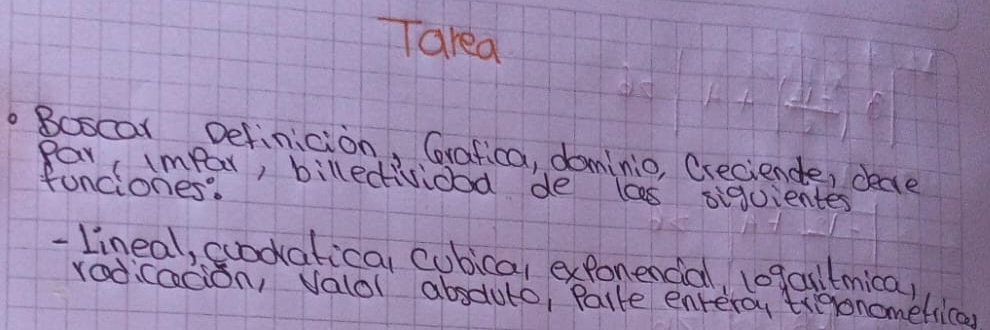 Tarea
• Buscar Definición, Grafica, dominio, Creciende, decre
Par, impar, billectividad de las siguientes
funciones:
- lineal, cuadratica, cubica, exponencial, logaritmica,
radicación, Valor absoluto, Parte entera, trigonometricas